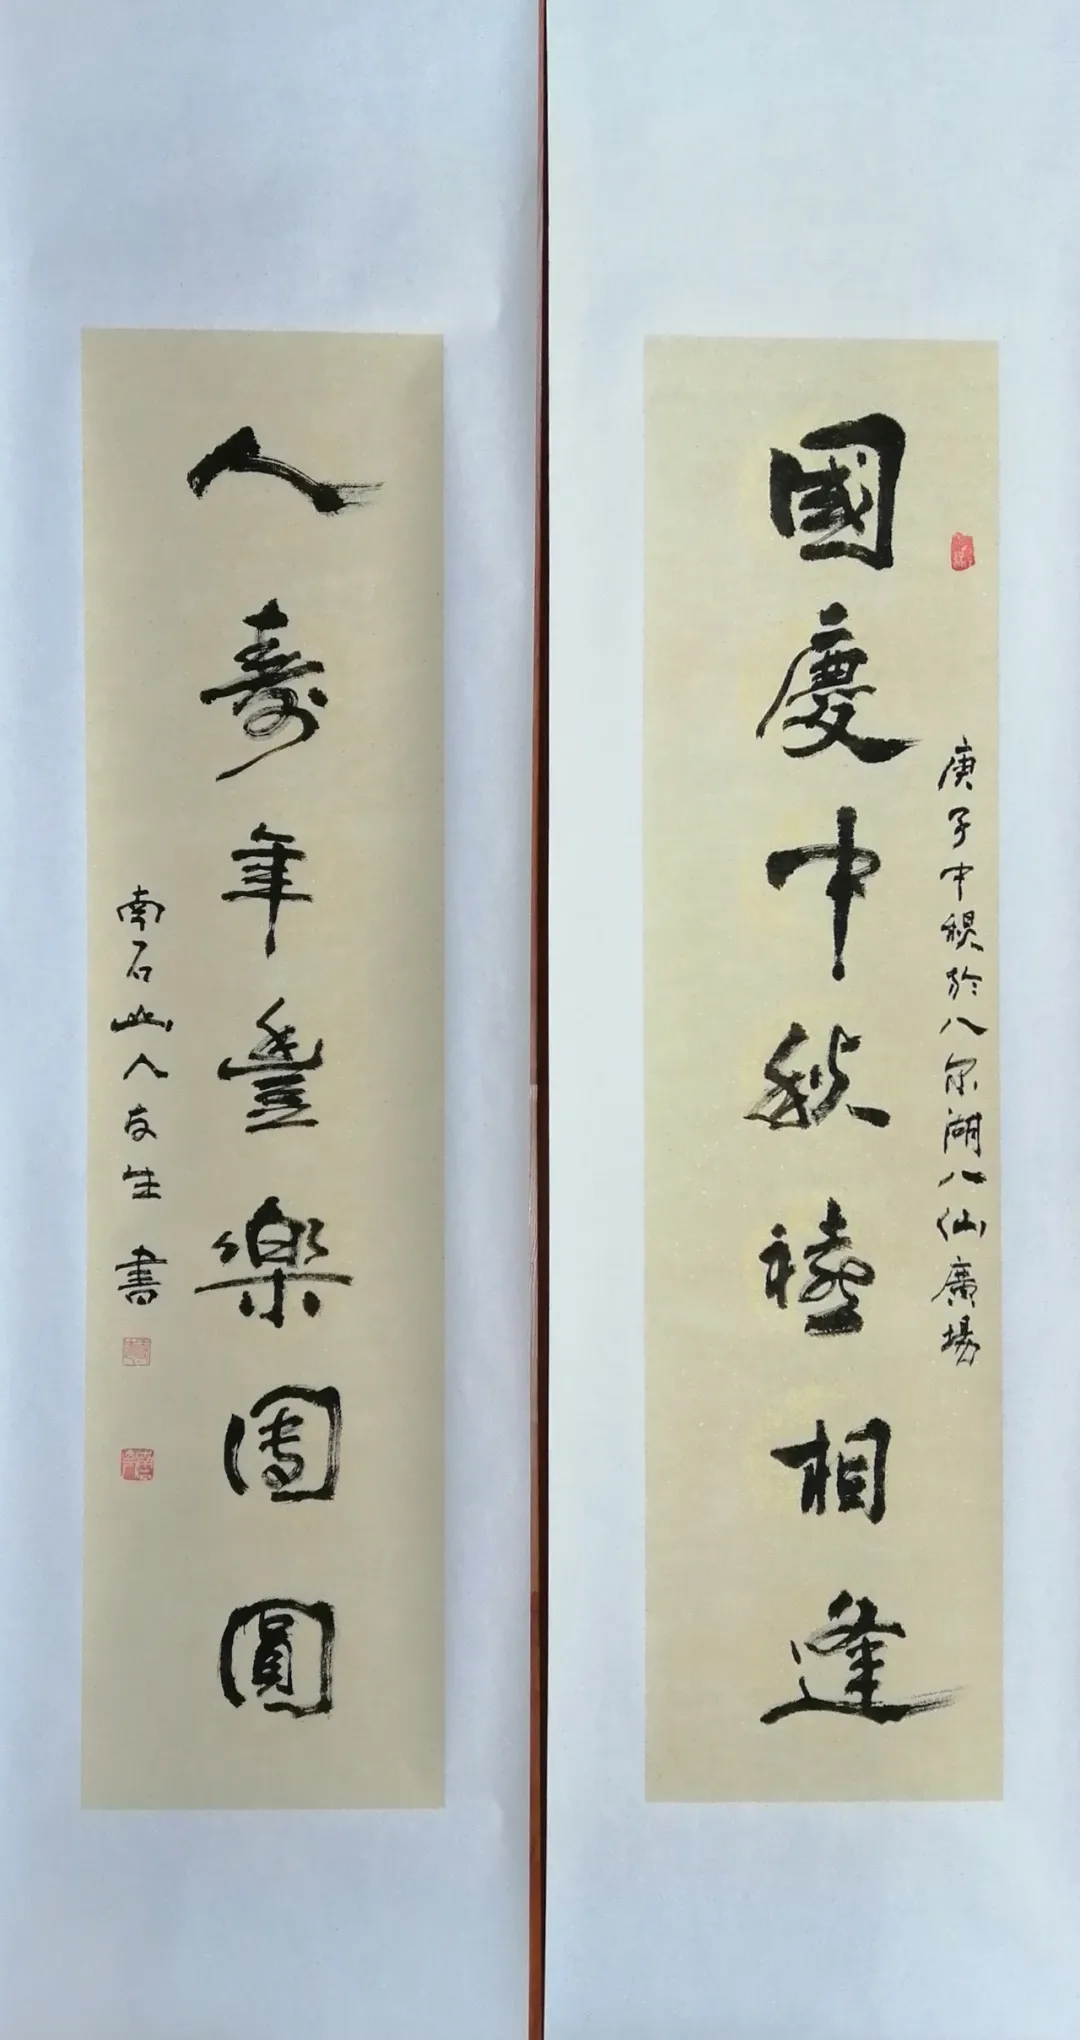 國慶中秋禧相逢
庚子中秋於八尔湖八仙廣場
人壽年豐樂團圓
南石山人友生書